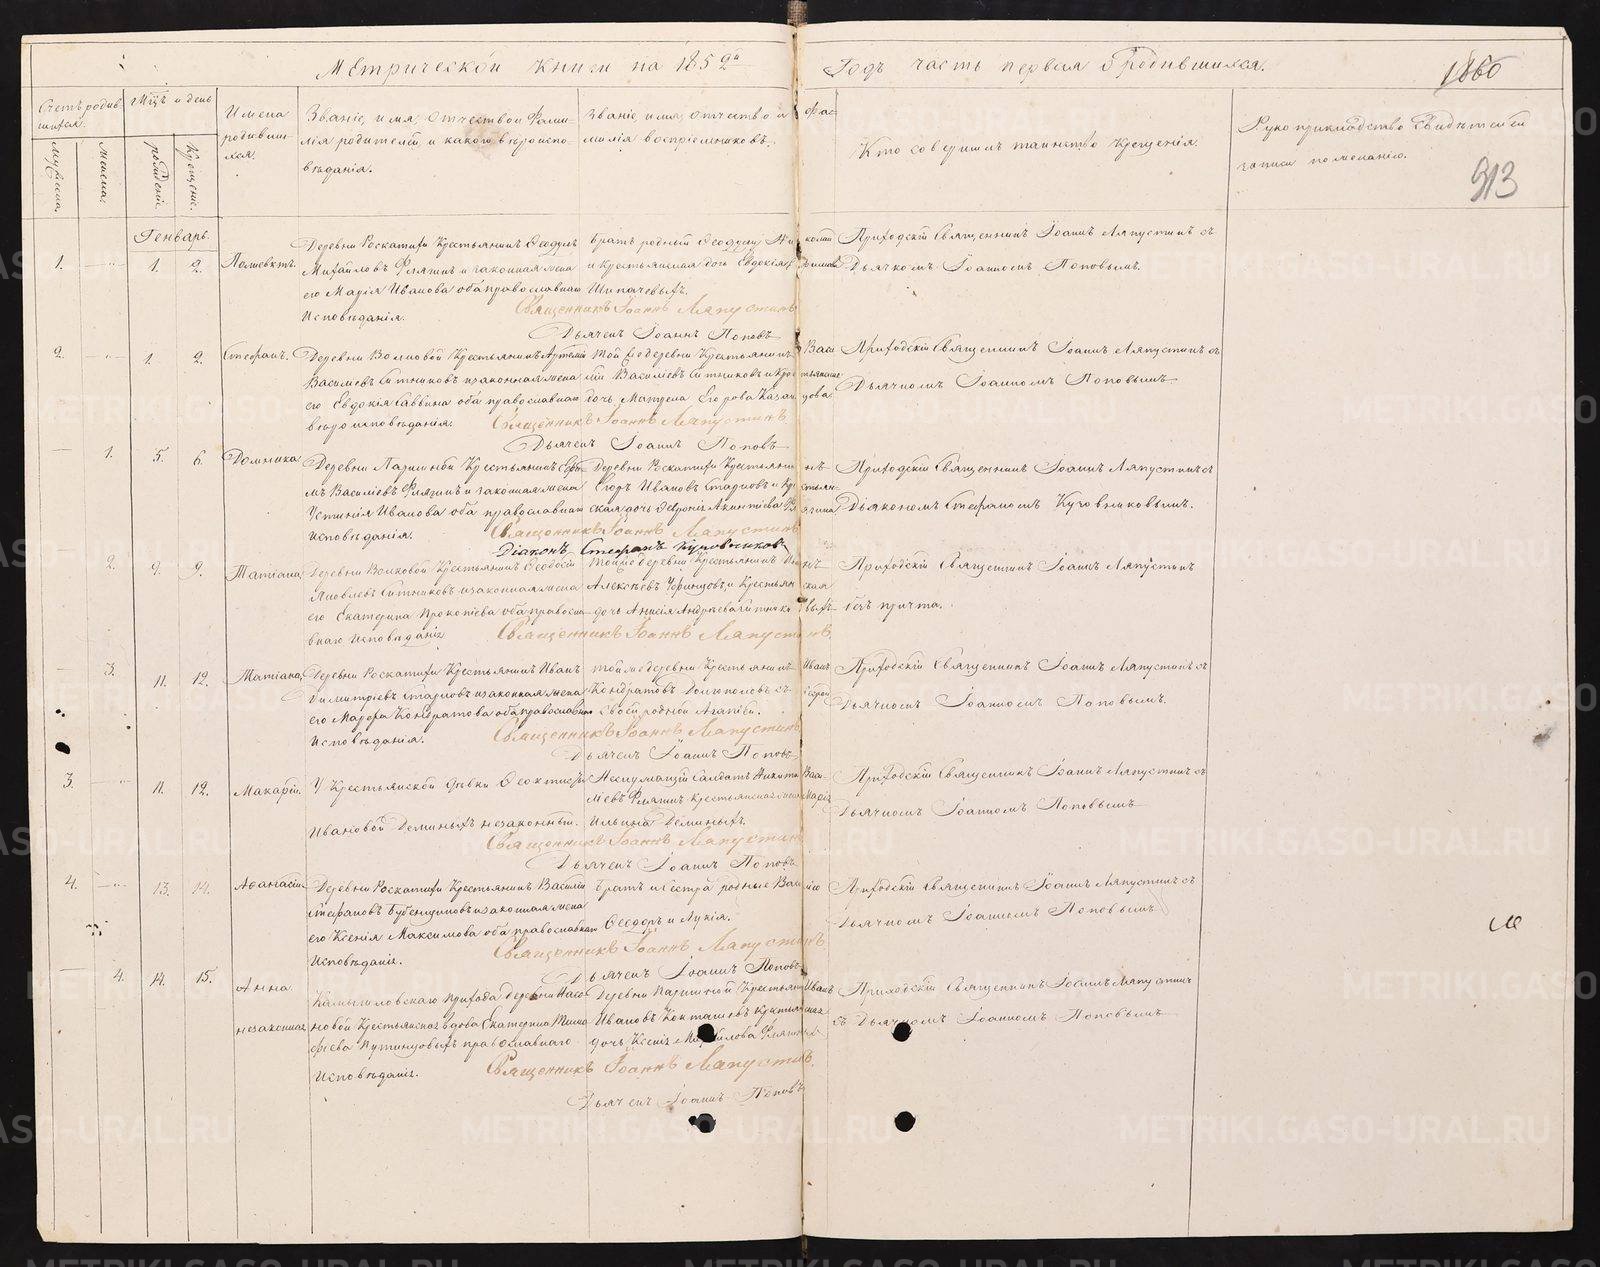 Метрической книги на 1852й Годъ часть первая о родившихся.
1860
913
Счетъ родив-
шихся.
Мцъ и день
Имена
родивши-
хся.
Званіе, имя, отчество и Фами-
лія родителей, и какого вѣроиспо-
вѣданія.
Званіе, имя, отчество и фа-
милія воспріемниковъ.
Кто совершилъ таинство крещенія.
Рукоприкладство свидѣтелей
записи по желанію.
мужеска.
женска.
рожденіе
крещеніе.
Генварь.
1. 1. 2. Полиевктъ.
Деревни Роскатихи Крестьянинъ Ѳеодулъ
Михайловъ Флягинъ и законная жена
его Марія Иванова оба православнаго
Исповѣданія.
Братъ родный Ѳеодулу
и крестьянская дочь Евдокія
Шипачевыхъ.
Приходскій Священникъ Іоаннъ Ляпустинъ съ
Дьячкомъ Іоанномъ Поповымъ.
Священникъ Іоаннъ Ляпустинъ
Дьячекъ Іоаннъ Поповъ
2. 1. 2. Стефанъ.
Деревни Волковой Крестьянинъ Артемій
Василіевъ Ситниковъ и законная жена
его Евдокія Саввина оба православнаго
вѣроисповѣданія.
Той же деревни Крестьянинъ Васи
лій Василіевъ Ситниковъ и Крестьянская
дочь Матрена Егорова Казанцова
Приходскій Священникъ Іоаннъ Ляпустинъ съ
Дьячкомъ Іоанномъ Поповымъ
Священникъ Іоаннъ Ляпустинъ
Дьячекъ Іоаннъ Поповъ
1. 5. 6. Домника
Деревни Паршиной Крестьянинъ Ефи-
мъ Василіевъ Флягинъ и законная жена
Устинія Иванова оба православнаго
исповѣданія.
Деревни Роскатихи Крестьянинъ
Егоръ Ивановъ Старковъ и Крестьян-
ская дочь Акинтіева Флягина
Приходскій Священникъ Іоаннъ Ляпустинъ съ
Діякономъ Стефаномъ Кузовниковымъ.
Священникъ Іоаннъ Ляпустинъ
Діаконъ Стефанъ Кузовниковъ
2. 9. 9. Татіана
Деревни Волковой Крестьянинъ Ѳеодосій
Яковлевъ Ситниковъ и законная жена
его Екатерина Прокопіева оба правосла-
внаго Исповѣданія
Той же деревни Крестьянинъ
Алексѣевъ и Крестьянская
дочь Анисія Андреева Ситниковыхъ
Приходскій Священникъ Іоаннъ Ляпустинъ
безъ причта.
Священникъ Іоаннъ Ляпустинъ.
3. 11. 12. Татіана
Деревни Роскатихи Крестьянинъ Иванъ
Димитріевъ Старковъ и законная жена
его Марфа Кондратова оба православнаго
Исповѣданія.
Той же деревни Крестьянинъ Иванъ
Кондратовъ Долгополовъ съ сестрой
своей родной Агапіей.
Приходскій Священникъ Іоаннъ Ляпустинъ съ
Дьячкомъ Іоанномъ Поповымъ.
Священникъ Іоаннъ Ляпустинъ
Дьячекъ Іоаннъ Поповъ
3. 11. 12. Макарій.
У Крестьянской дѣвки Ѳеоктисты
Ивановой Деминыхъ незаконный.
Неслужащій Салдатъ Никита Васи-
ліевъ Флягинъ и крестьянская Марія
Ильина Деминыхъ.
Приходскій Священникъ Іоаннъ Ляпустинъ съ
Дьячкомъ Іоанномъ Поповымъ
Священникъ Іоаннъ Ляпустинъ
Дьячекъ Іоаннъ Поповъ
4. 13. 14. Аѳанасій
Деревни Роскатихи Крестьянинъ Василій
Стефановъ Бубенщиковъ и законная жена
его Ксенія Максимова оба православнаго
Исповѣданія.
Братъ и сестра родные Василію
Ѳеодоръ и Лукія.
Приходскій Священникъ Іоаннъ Ляпустинъ съ
Дьячкомъ Іоанномъ Поповымъ
Священникъ Іоаннъ Ляпустинъ
Дьячекъ Іоаннъ Поповъ
4. 14. 15. Анна
незаконная
Камышловскаго прихода деревни Насо-
новой Крестьянская вдова Екатерина Тимо-
фѣева Путинцовыхъ православнаго
Исповѣданія.
Деревни Паршиной Крестьянинъ Иванъ
Ивановъ и крестьянская
дочь Ксенія Михайлова Флягиныхъ
Приходскій Священникъ Іоаннъ Ляпустинъ
съ Дьячкомъ Іоанномъ Поповымъ
Священникъ Іоаннъ Ляпустинъ.
Дьячекъ Іоаннъ Поповъ
METRIKI.GASO-URAL.RU